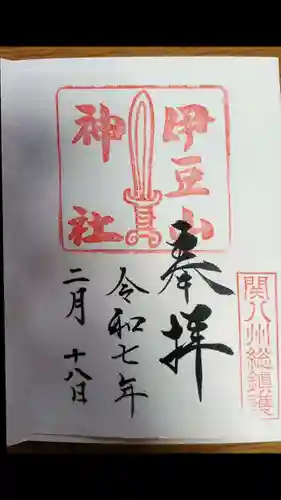 関八州総鎮護
伊豆山
神社
奉拝
令和七年
二月 十八日